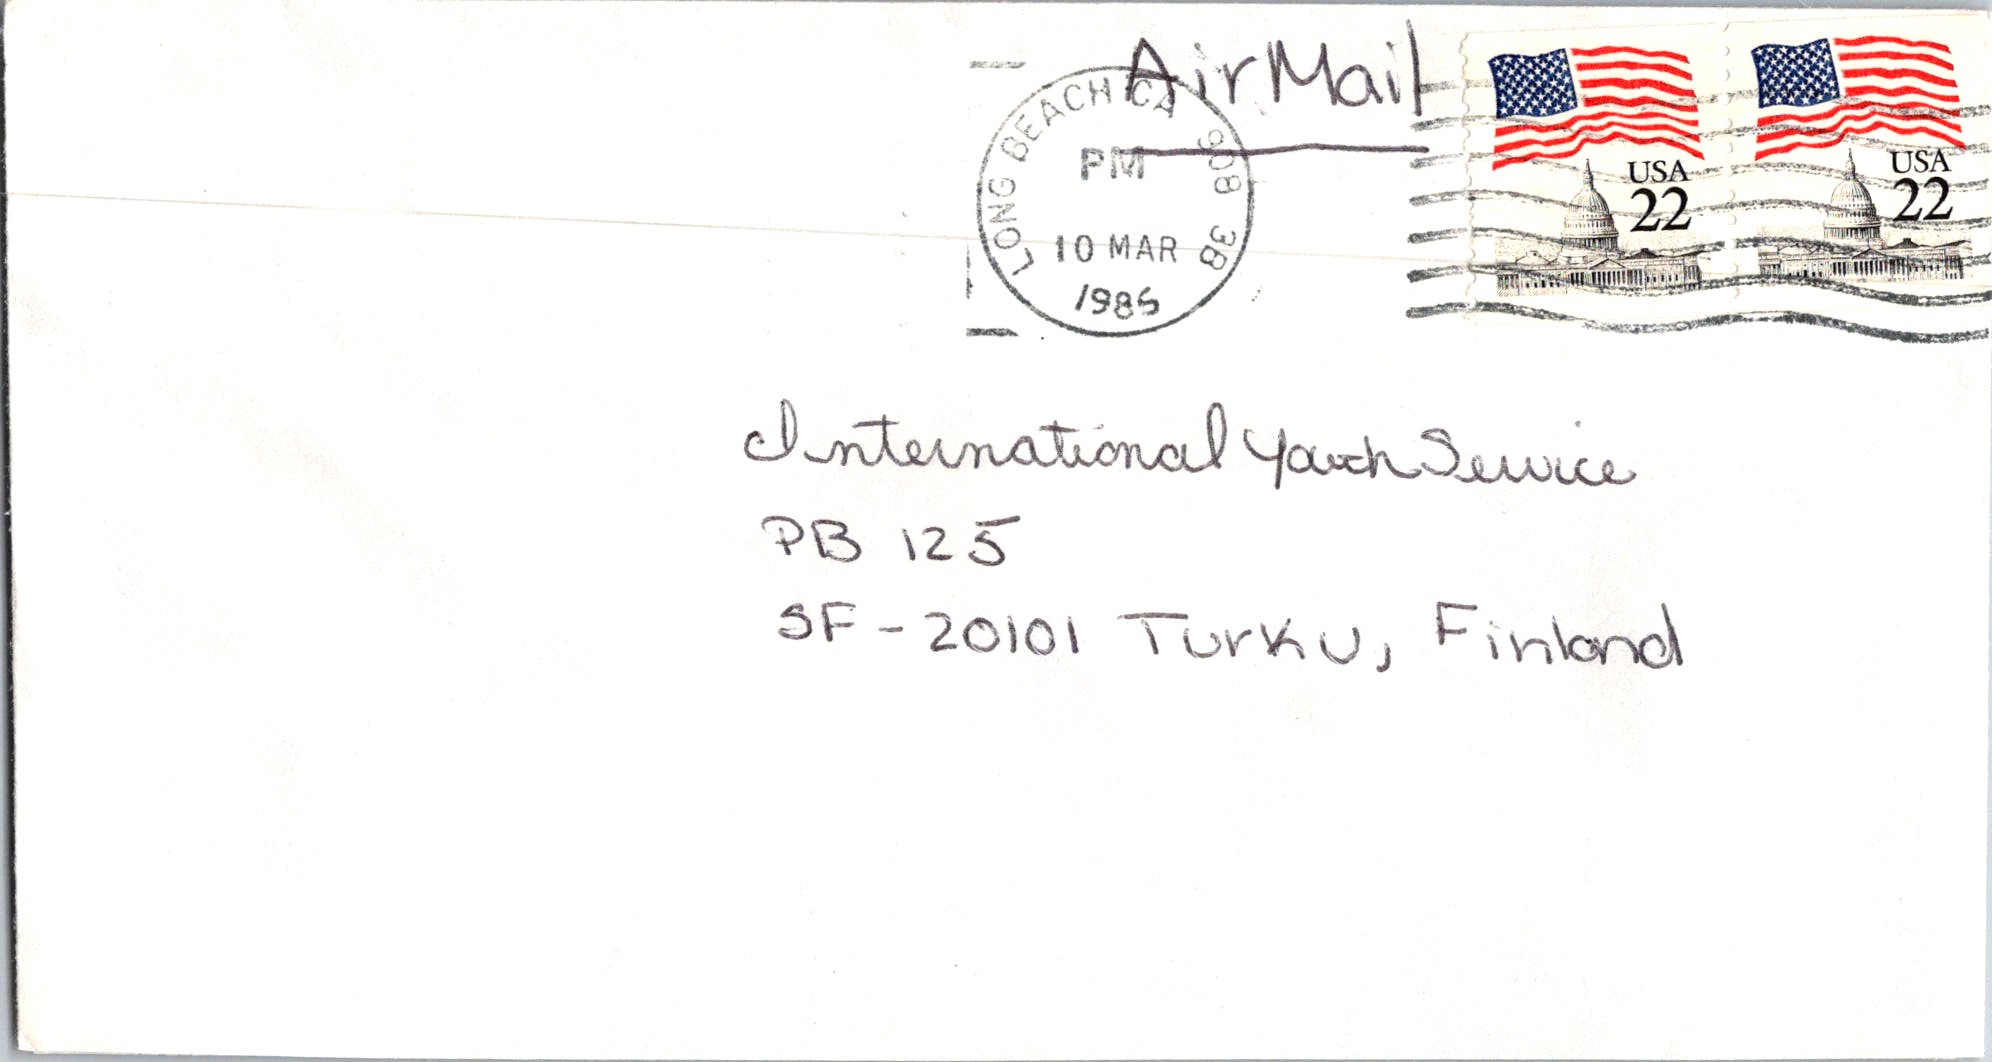 Air Mail
LONG BEACH CA 908 3B
PM
10 MAR
1986
USA
22
USA
22
International Youth Service
PB 125
SF - 20101 Turku, Finland